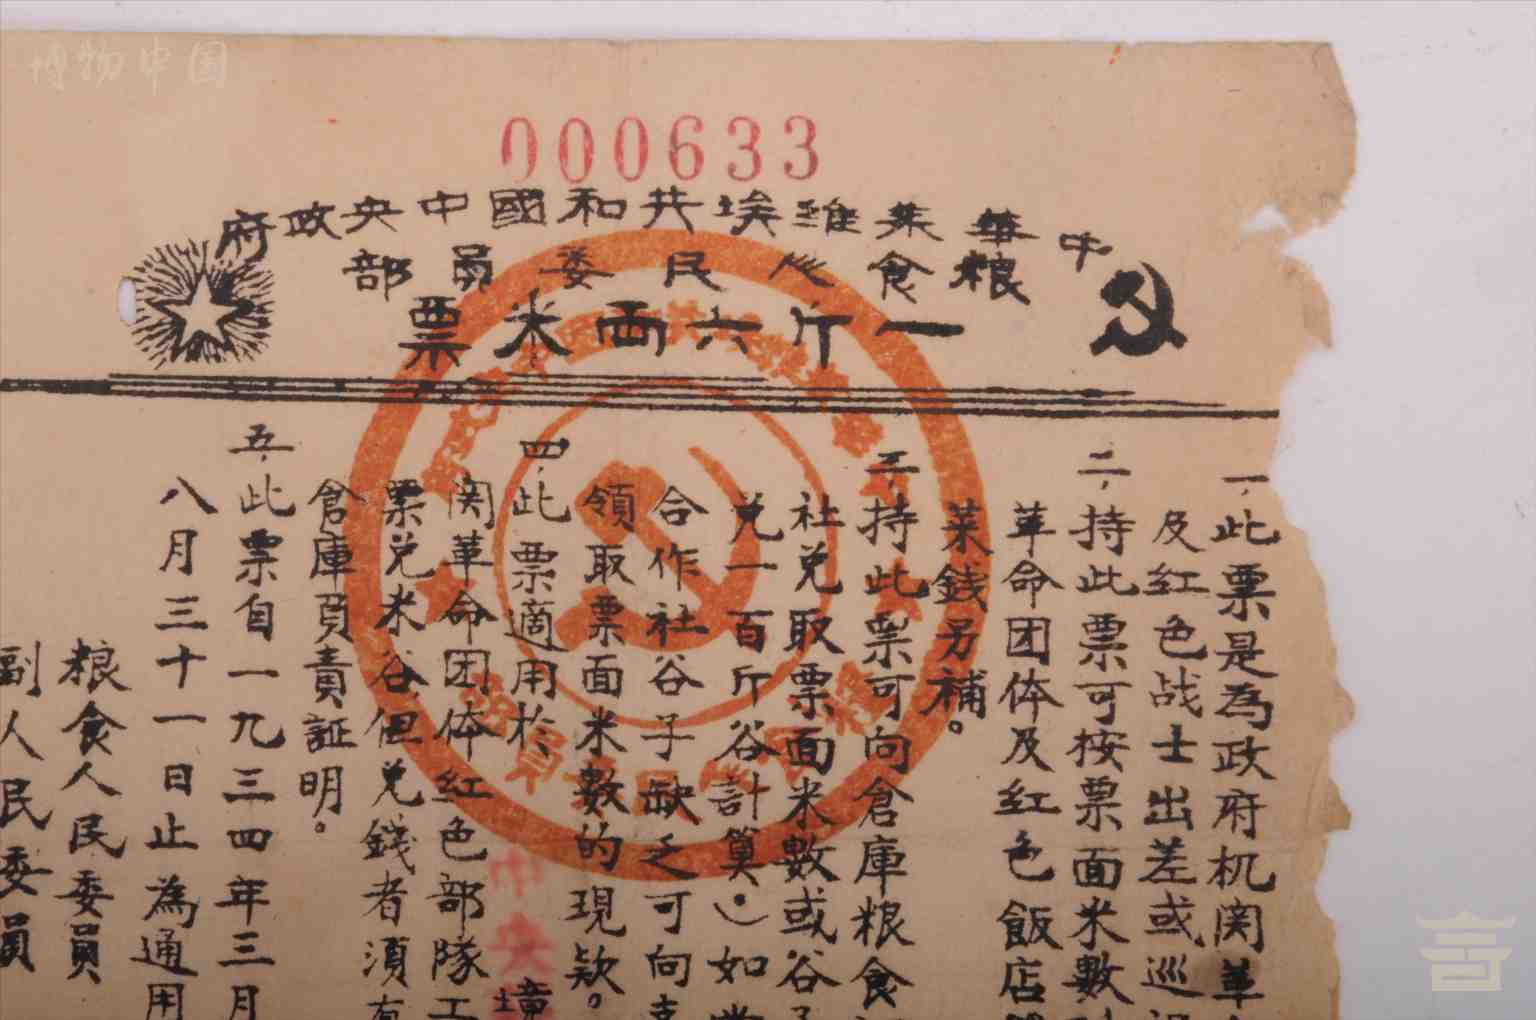 博物中国
000633
中華蘇維埃共和國中央政府
粮食人民委員部
一斤六両米票
一,此票是為政府机関革
及紅色战士出差或巡視
二,持此票可按票面米數到
革命团体及紅色飯店
菜錢另補。
三,持此票可向倉庫粮食
社兑取票面米數或谷子
兑一百斤谷計算.)如當
合作社谷子缺乏可向
領取票面米數的現欵。
四,此票適用於 境
関革命团体紅色部隊工
票兑米谷但兑錢者須有
倉庫負責証明。
五,此票自一九三四年三月
八月三十一日止為通用
粮食人民委員
副人民委員
中央